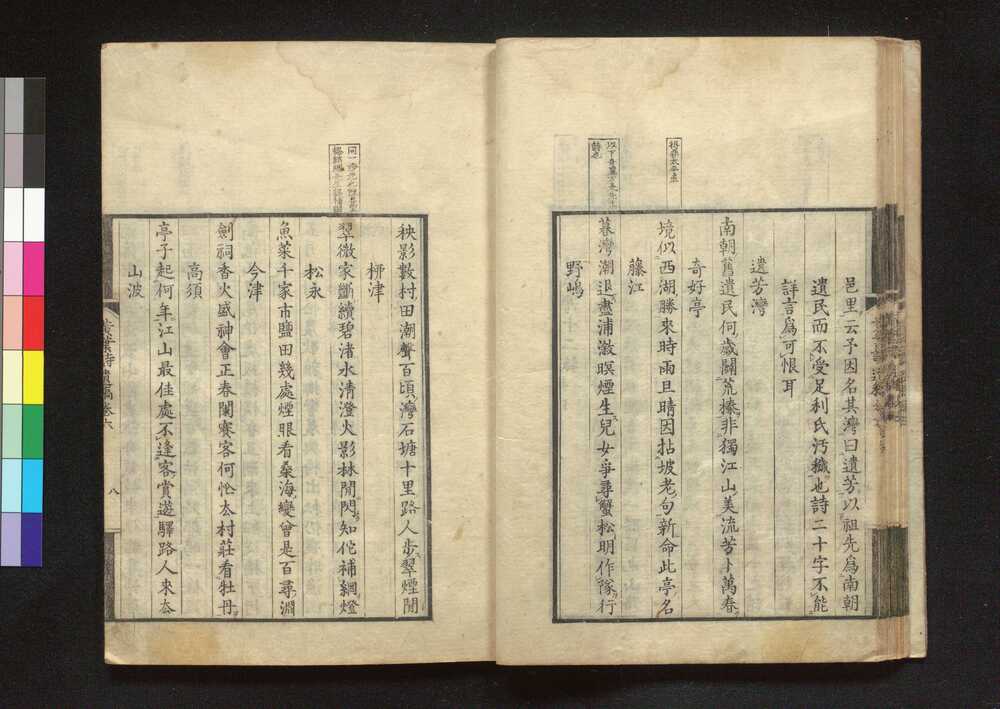 邑里云予因名其灣曰遺芳以祖先爲南朝
遺民而不受足利氏汚穢也詩二十字不能
詳言爲可恨耳
遺芳灣
南朝舊遺民何歲關荒榛非獨江山美流芳卜萬春
奇好亭
境似西湖勝來時雨且晴因拈坡老句新命此亭名
藤江
暮灣潮退盡浦漵暝煙生兒女爭尋蟹松明作隊行
野嶋
秧影數村田潮聲百頃灣石塘十里路人步翠煙閒
柳津
翠微家斷續碧渚水清澄火影林閒閃知佗補網燈
松永
魚菜千家市鹽田幾處煙眼看桑海變曾是百尋淵
今津
劍祠香火盛神會正春闌賽客何忙去村莊看牡丹
高須
亭子起何年江山最佳處不逢客賞遊驛路人來去
山波
葦詩遺稿卷六
八